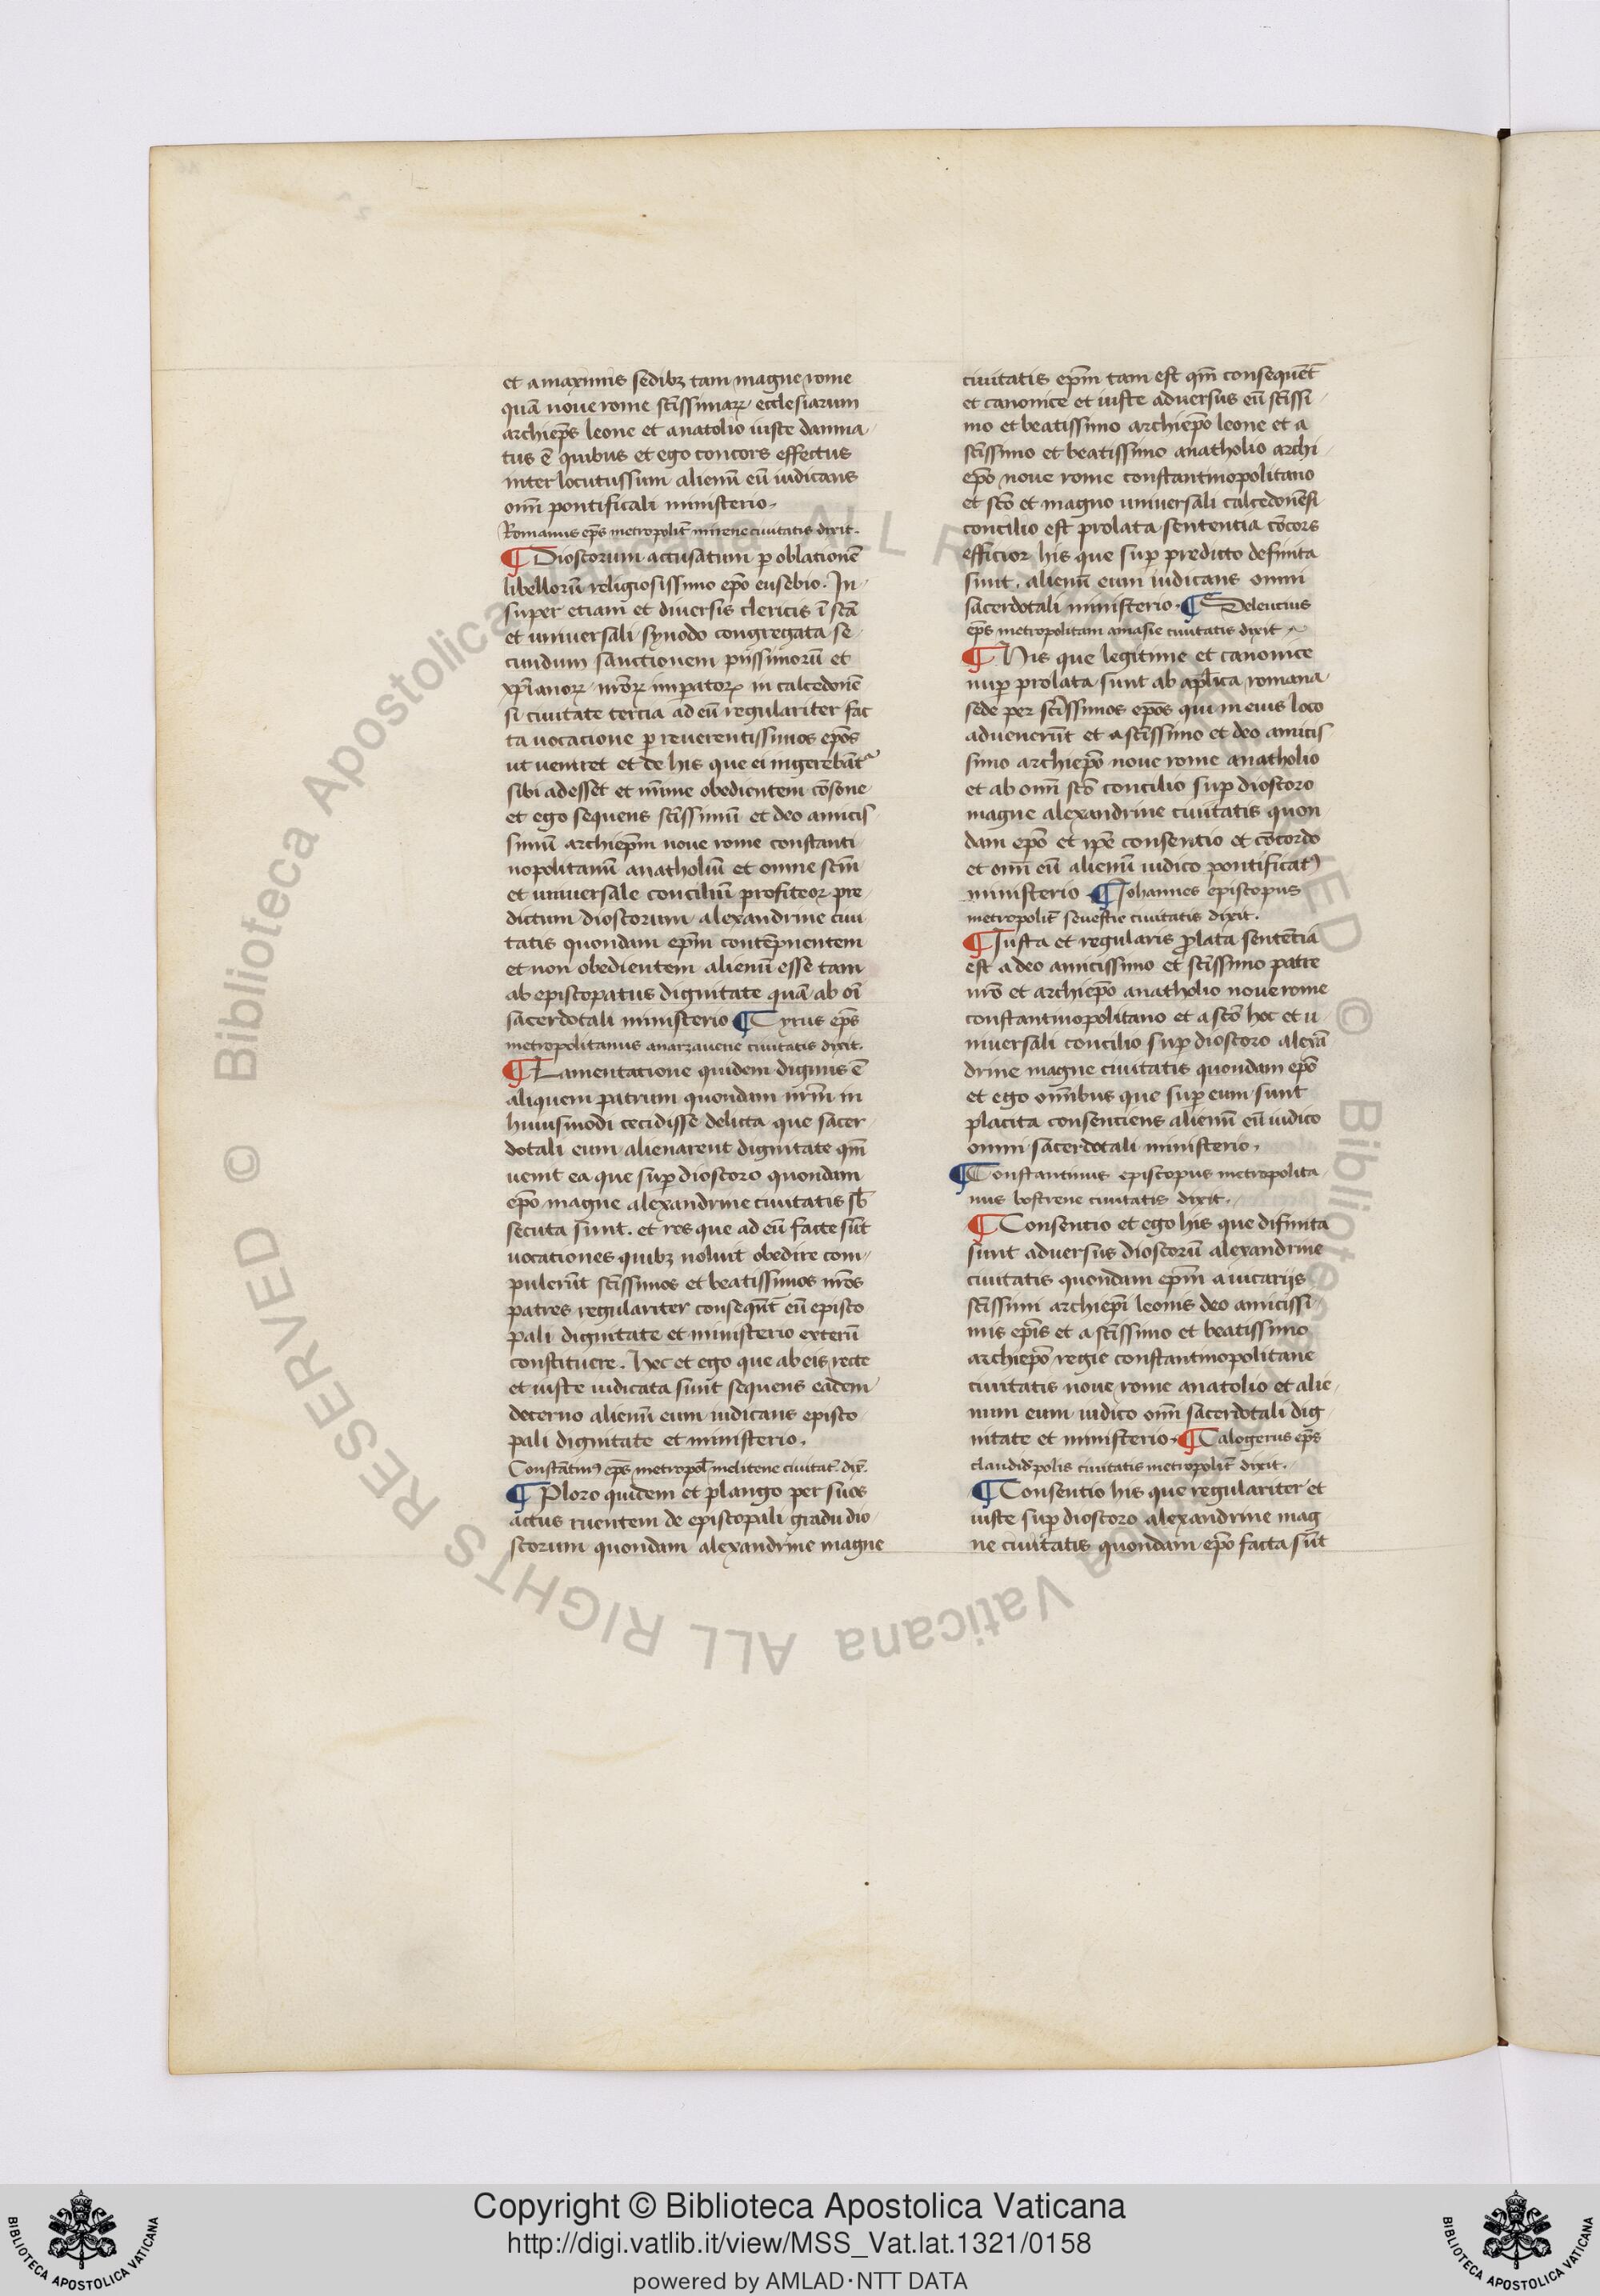 et a maximis sedibꝫ tam magne rome
quā noue rome sc̄issimaꝝ ecclesiarum
archiep̄s leone et anatolio iuste damna
tus ē quibus et ego concors effectus
inter locutus sum alienū eū iudicans
om̄i pontificali ministerio.
Romanus ep̄s metropolit̄ mirene ciuitatis dixit.
¶ Dioscorum accusatum ꝑ oblationē
libellorū religiosissimo ep̄o eusebio. In
super etiam et diuersis clericis ī sc̄a
et uniuersali synodo congregata se
cundum sanctionem piissimorū et
xp̄ianoꝝ nr̄oꝝ imꝑatoꝝ in calcedonē
si ciuitate tercia ad eū regulariter fac
ta uocacione ꝑ reuerentissimos ep̄os
ut ueniret et de his que ei ingerebāt᷑
sibi adesset et mīme obedientem cōsone
et ego sequens sc̄issimū et deo amicis
simū archiep̄m noue rome constanti
nopolitanū anatholiū et omne sc̄m
et uniuersale conciliū profiteor pre
dictum dioscorum alexandrine ciui
tatis quondam ep̄m contēpnentem
et non obedientem alienū esse tam
ab episcopatus dignitate quā ab oī
sacerdotali ministerio ¶ Cyrus ep̄s
metropolitanus anarzauene ciuitatis dixit.
¶ Lamentacione quidem dignus ē
aliquem patrum quondam nr̄m in
huiusmodi cecidisse delicta que sacer
dotali eum alienarent dignitate qm̄
uenit ea que suꝑ dioscoro quondam
ep̄o magne alexandrine ciuitatis sb̄
secuta sunt. et res que ad eū facte sūt
uocationes quibꝫ noluit obedire com
pulerūt sc̄issimos et beatissimos nr̄os
patres regulariter conseqn̄t eū episco
pali dignitate et ministerio exterū
constituere. Hec et ego que ab eis recte
et iuste iudicata sunt sequens eadem
decerno alienū eum iudicans episco
pali dignitate et ministerio.
Constātinꝰ ep̄s metropol̄ melitene ciuitat̄. dix̄.
¶ Ploro quidem et plango per suos
actus ruentem de episcopali gradu dio
scorum quondam alexandrine magne
ciuitatis ep̄m tam est qm̄ consequēt̄
et canonice et iuste aduersus eū sc̄issi
mo et beatissimo archiep̄o leone et a
sc̄issimo et beatissimo anatholio archi
ep̄o noue rome constantinopolitano
et sc̄o et magno uniuersali calcedonēsi
concilio est prolata sententia cōcors
efficior his que suꝑ predicto definita
sunt. alienū eum iudicans omni
sacerdotali ministerio. ¶ Seleucius
ep̄s metropolitam amasie ciuitatis dixit
¶ His que legitime et canonice
nuꝑ prolata sunt ab ap̄lica romana
sede per sc̄issimos ep̄os qui in eius loco
aduenerūt et a sc̄issimo et deo amicis
simo archiep̄o noue rome anatholio
et ab om̄i sc̄o concilio suꝑ dioscoro
magne alexandrine ciuitatis quon
dam ep̄o et ip̄e consentio et cōcordo
et om̄i eū alienū iudico pontificatꝰ
ministerio ¶ Johannes episcopus
metropolit̄ seuastie ciuitatis dixit.
¶ Justa et regularis ꝓlata sentētia
est a deo amicissimo et sc̄issimo patre
nr̄o et archiep̄o anatholio noue rome
constantinopolitano et a sc̄o hoc et u
niuersali concilio suꝑ dioscoro alexā
drine magne ciuitatis quondam ep̄o
et ego om̄ibus que suꝑ eum sunt
placita consenciens alienū eū iudico
omni sacerdotali ministerio.
¶ Constantinus episcopus metropolita
nus bostrene ciuitatis dixit.
¶ Consentio et ego his que difinita
sunt aduersus dioscorū alexandrine
ciuitatis quondam ep̄m a uicarijs
sc̄issimi archiep̄i leonis deo amicissi
mis ep̄is et a sc̄issimo et beatissimo
archiep̄o regie constantinopolitane
ciuitatis noue rome anatolio et alie
num eum iudico om̄i sacerdotali dig
nitate et ministerio. ¶ Calogerus ep̄s
claudiopolis ciuitatis metropolit̄ dixit.
¶ Consentio his que regulariter et
iuste suꝑ dioscoro alexandrine mag
ne ciuitatis quondam ep̄o facta sūt
© Biblioteca Apostolica Vaticana ALL RIGHTS RESERVED
Copyright © Biblioteca Apostolica Vaticana
http://digi.vatlib.it/view/MSS_Vat.lat.1321/0158
powered by AMLAD·NTT DATA
BIBLIOTECA APOSTOLICA VATICANA
BIBLIOTECA APOSTOLICA VATICANA